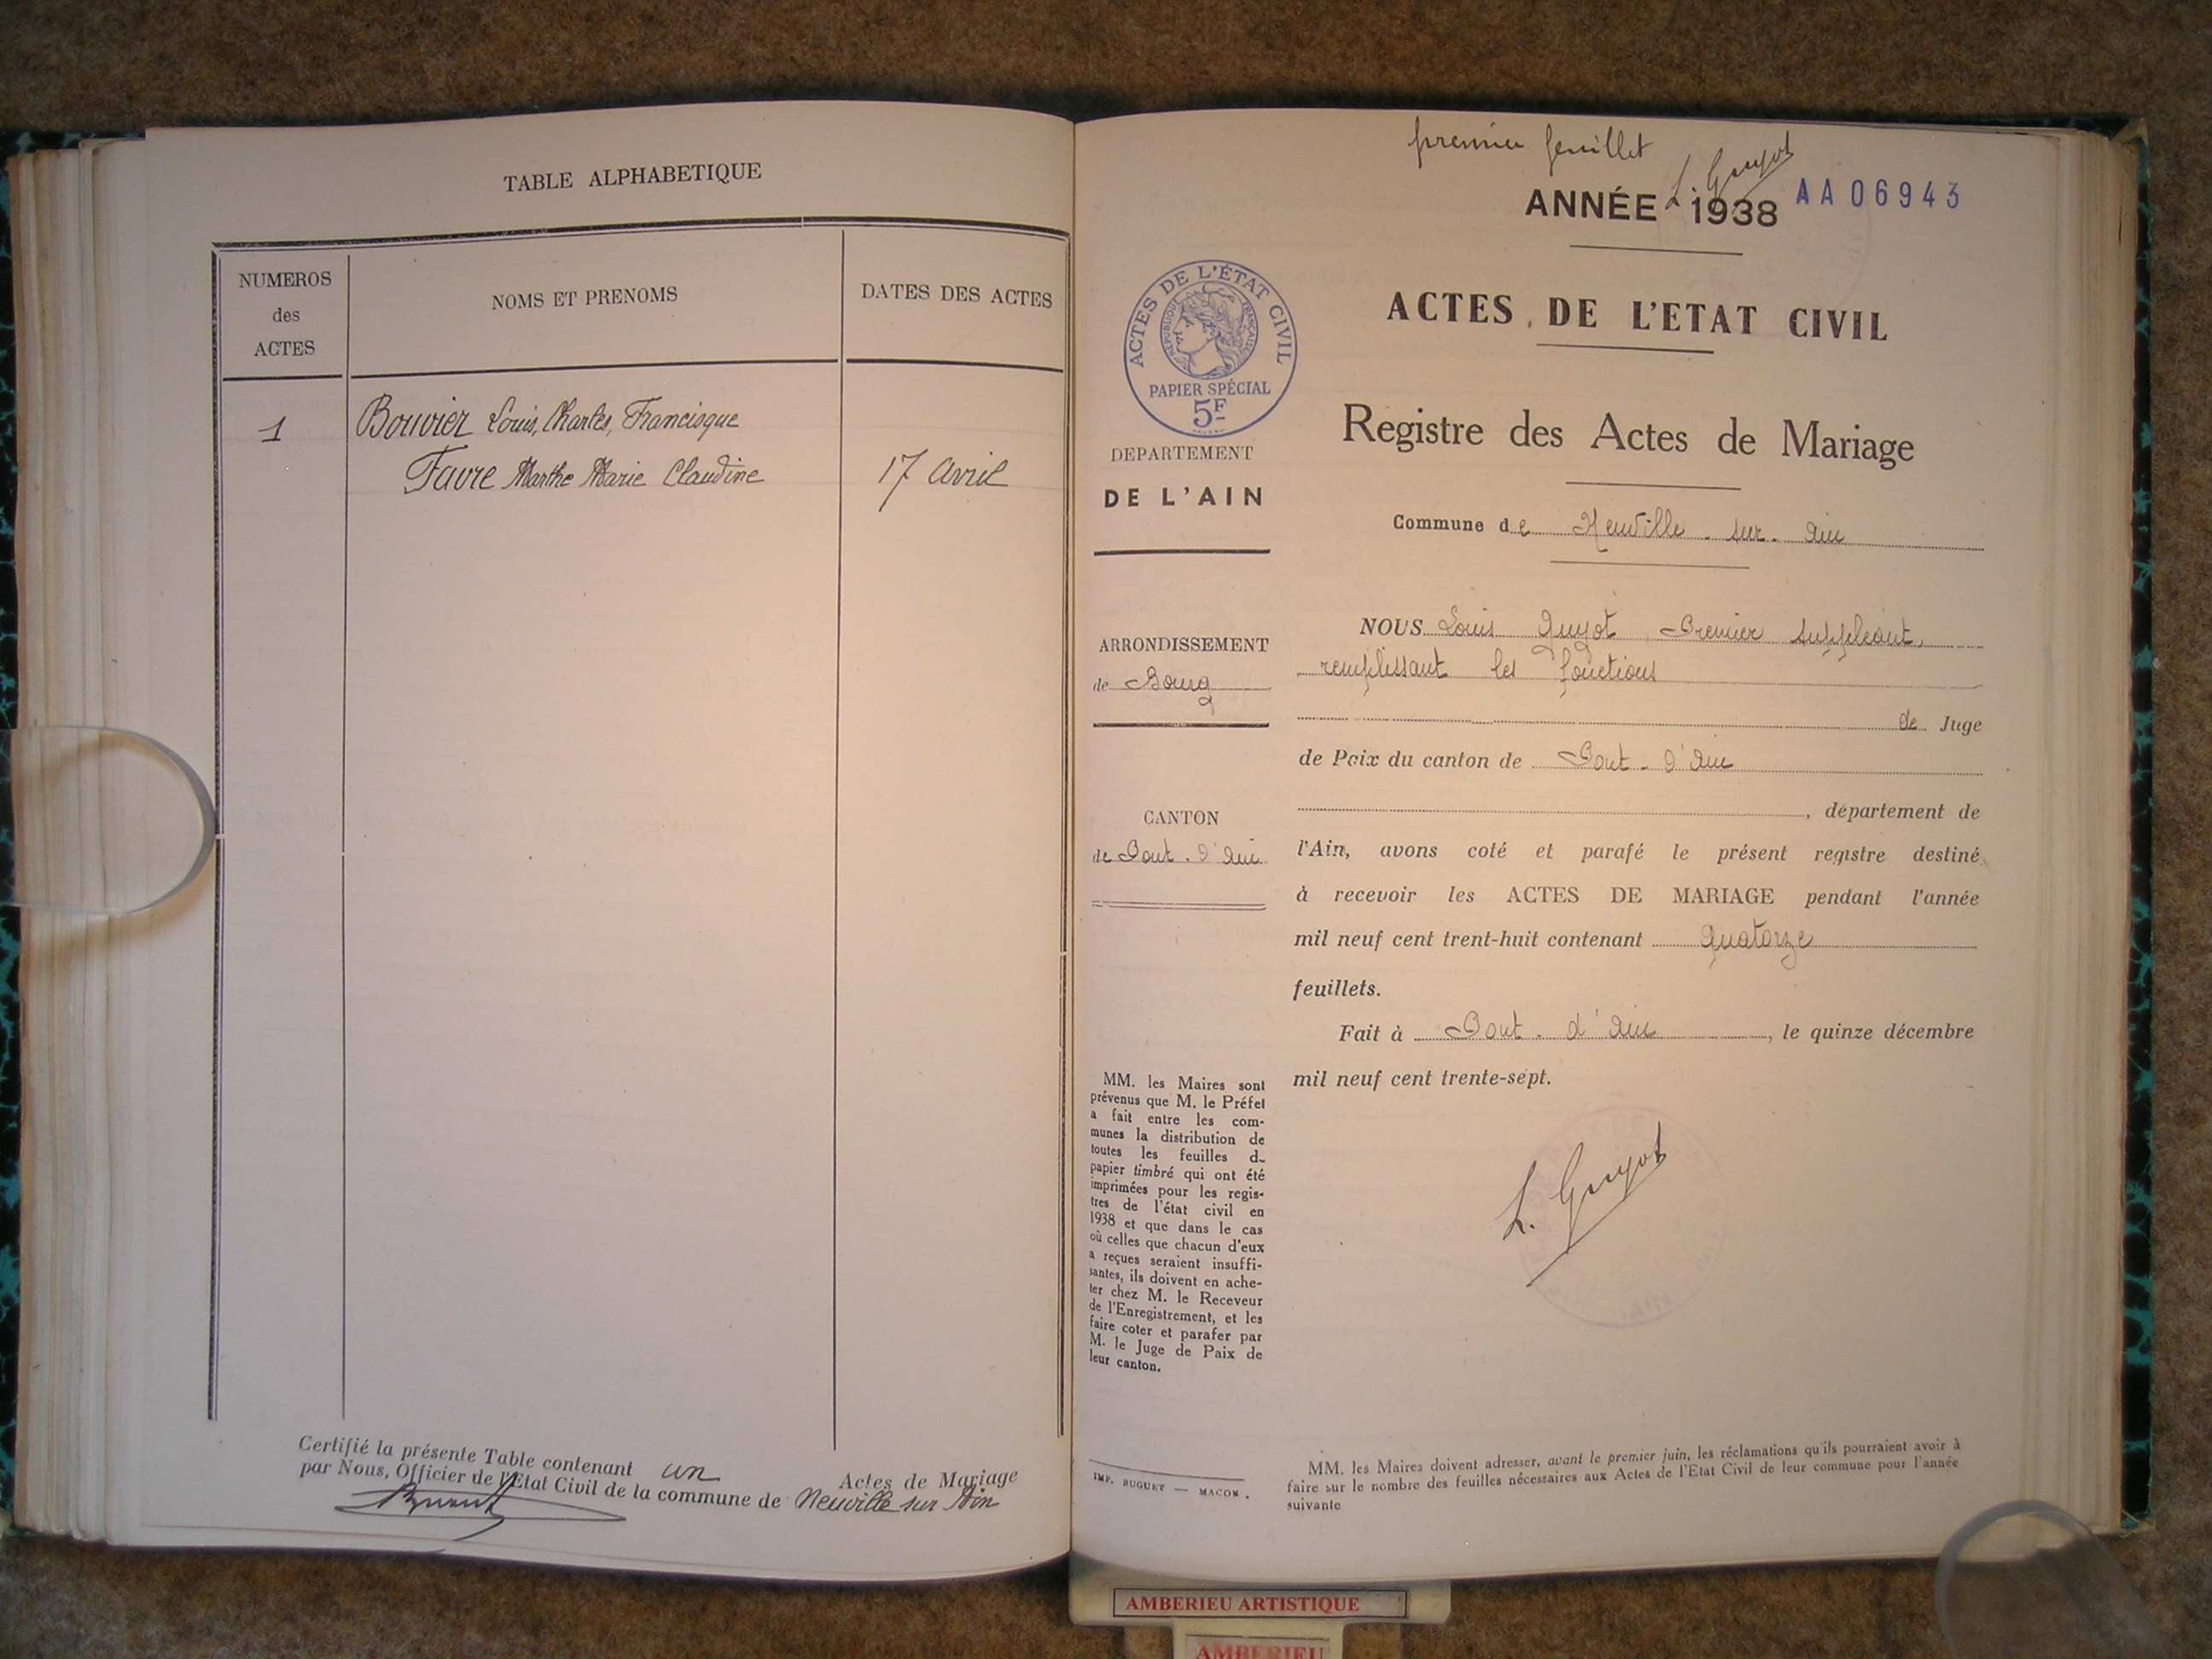 TABLE ALPHABETIQUE
NUMEROS
des
ACTES
NOMS ET PRENOMS
DATES DES ACTES
1
Bouvier Louis, Charles, Francisque
Favre Marthe Marie Claudine
17 avril
Certifié la présente Table contenant un Actes de Mariage
par Nous, Officier de l'Etat Civil de la commune de Neuville sur Ain
premier feuillet
L. Guyot
ANNÉE 1938
AA06943
ACTES DE L'ÉTAT CIVIL
RÉPUBLIQUE FRANÇAISE
PAPIER SPÉCIAL
5F
DEPARTEMENT
DE L'AIN
ARRONDISSEMENT
de Bourg
CANTON
de Pont. d'Ain
MM. les Maires sont
prévenus que M. le Préfet
a fait entre les com-
munes la distribution de
toutes les feuilles d
papier timbré qui ont été
imprimées pour les regis-
tres de l'état civil en
1938 et que dans le cas
où celles que chacun d'eux
a reçues seraient insuffi-
santes, ils doivent en ache-
ter chez M. le Receveur
de l'Enregistrement, et les
faire coter et parafer par
M. le Juge de Paix de
leur canton.
IMP. BUGUET — MACON.
ACTES DE L'ETAT CIVIL
Registre des Actes de Mariage
Commune de Neuville. sur. Ain
NOUS Louis Guyot, Premier suppléant,
remplissant les fonctions
de Juge
de Paix du canton de Pont. d'Ain
, département de
l'Ain, avons coté et parafé le présent registre destiné
à recevoir les ACTES DE MARIAGE pendant l'année
mil neuf cent trent-huit contenant quatorze
feuillets.
Fait à Pont. d'Ain, le quinze décembre
mil neuf cent trente-sept.
L. Guyot
MM. les Maires doivent adresser, avant le premier juin, les réclamations qu'ils pourraient avoir à
faire sur le nombre des feuilles nécessaires aux Actes de l'Etat Civil de leur commune pour l'année
suivante
AMBERIEU ARTISTIQUE
AMBERIEU